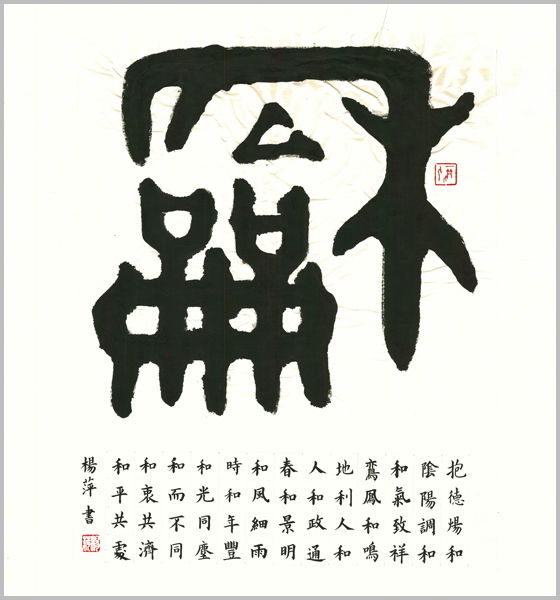 龢
抱德場和
陰陽調和
和氣致祥
鸞鳳和鳴
地利人和
人和政通
春和景明
和風細雨
時和年豐
和光同塵
和而不同
和衷共濟
和平共處
楊萍書